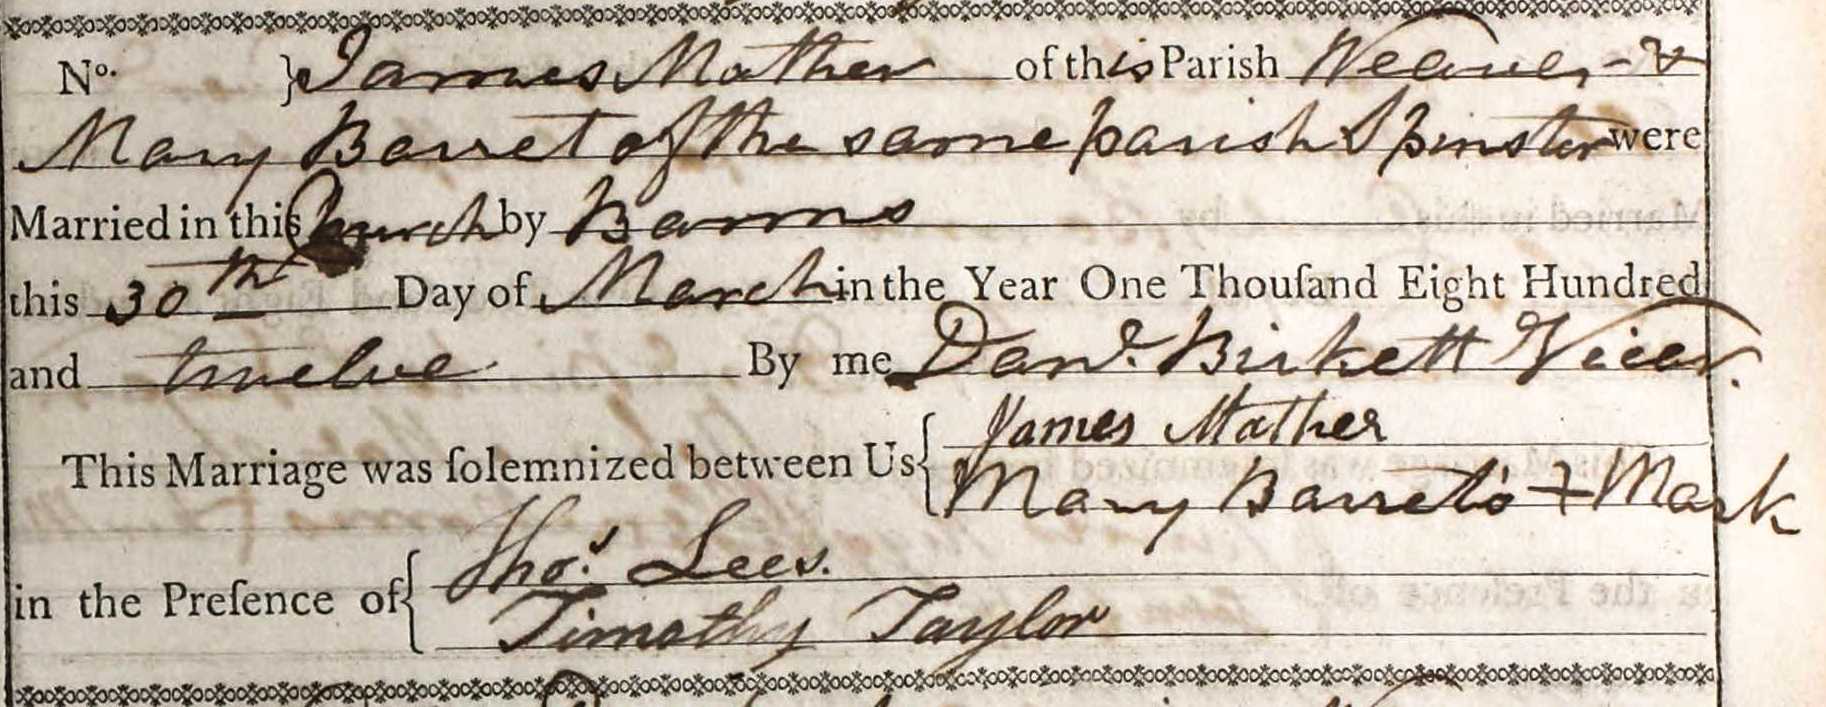 No. } James Mather of this Parish Weaver - &
Mary Barret of the same parish Spinster were
Married in this Church by Banns
this 30th Day of March in the Year One Thouſand Eight Hundred
and twelve By me Danl. Birkett Vicar.
This Marriage was ſolemnized between Us { James Mather
Mary Barret's + Mark
in the Preſence of { Thos. Lees.
Timothy Taylor